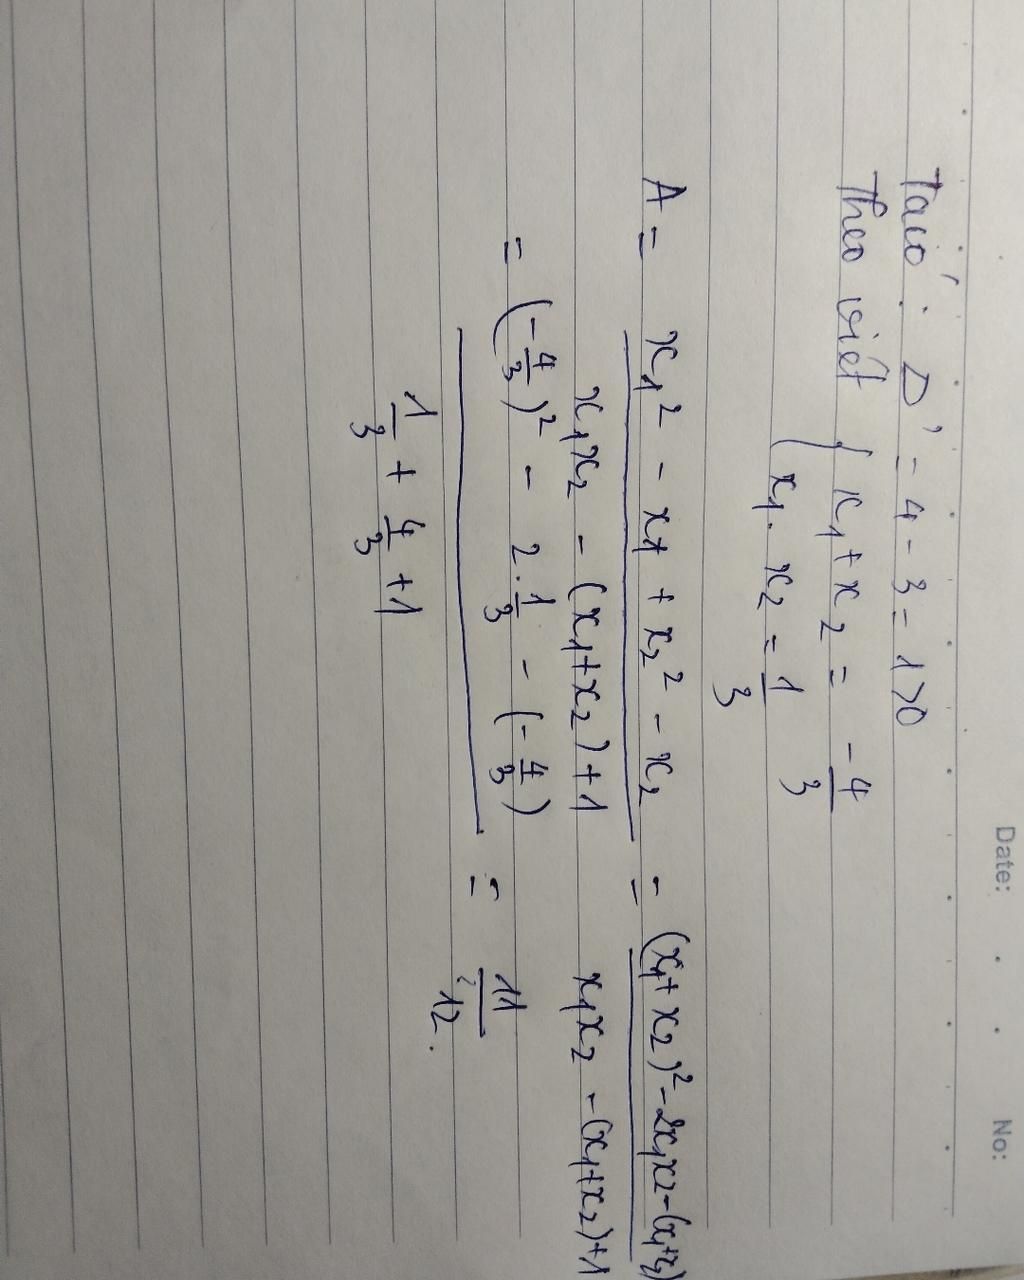 Date: No:
Ta có: Δ' = 4 - 3 = 1 > 0
Theo viét { x₁ + x₂ = -4/3
x₁ . x₂ = 1/3
A = (x₁² - x₁ + x₂² - x₂)/(x₁x₂ - (x₁+x₂) + 1) = ((x₁+x₂)² - 2x₁x₂ - (x₁+x₂))/(x₁x₂ - (x₁+x₂) + 1)
= ((-4/3)² - 2.1/3 - (-4/3))/(1/3 + 4/3 + 1) = 11/12.